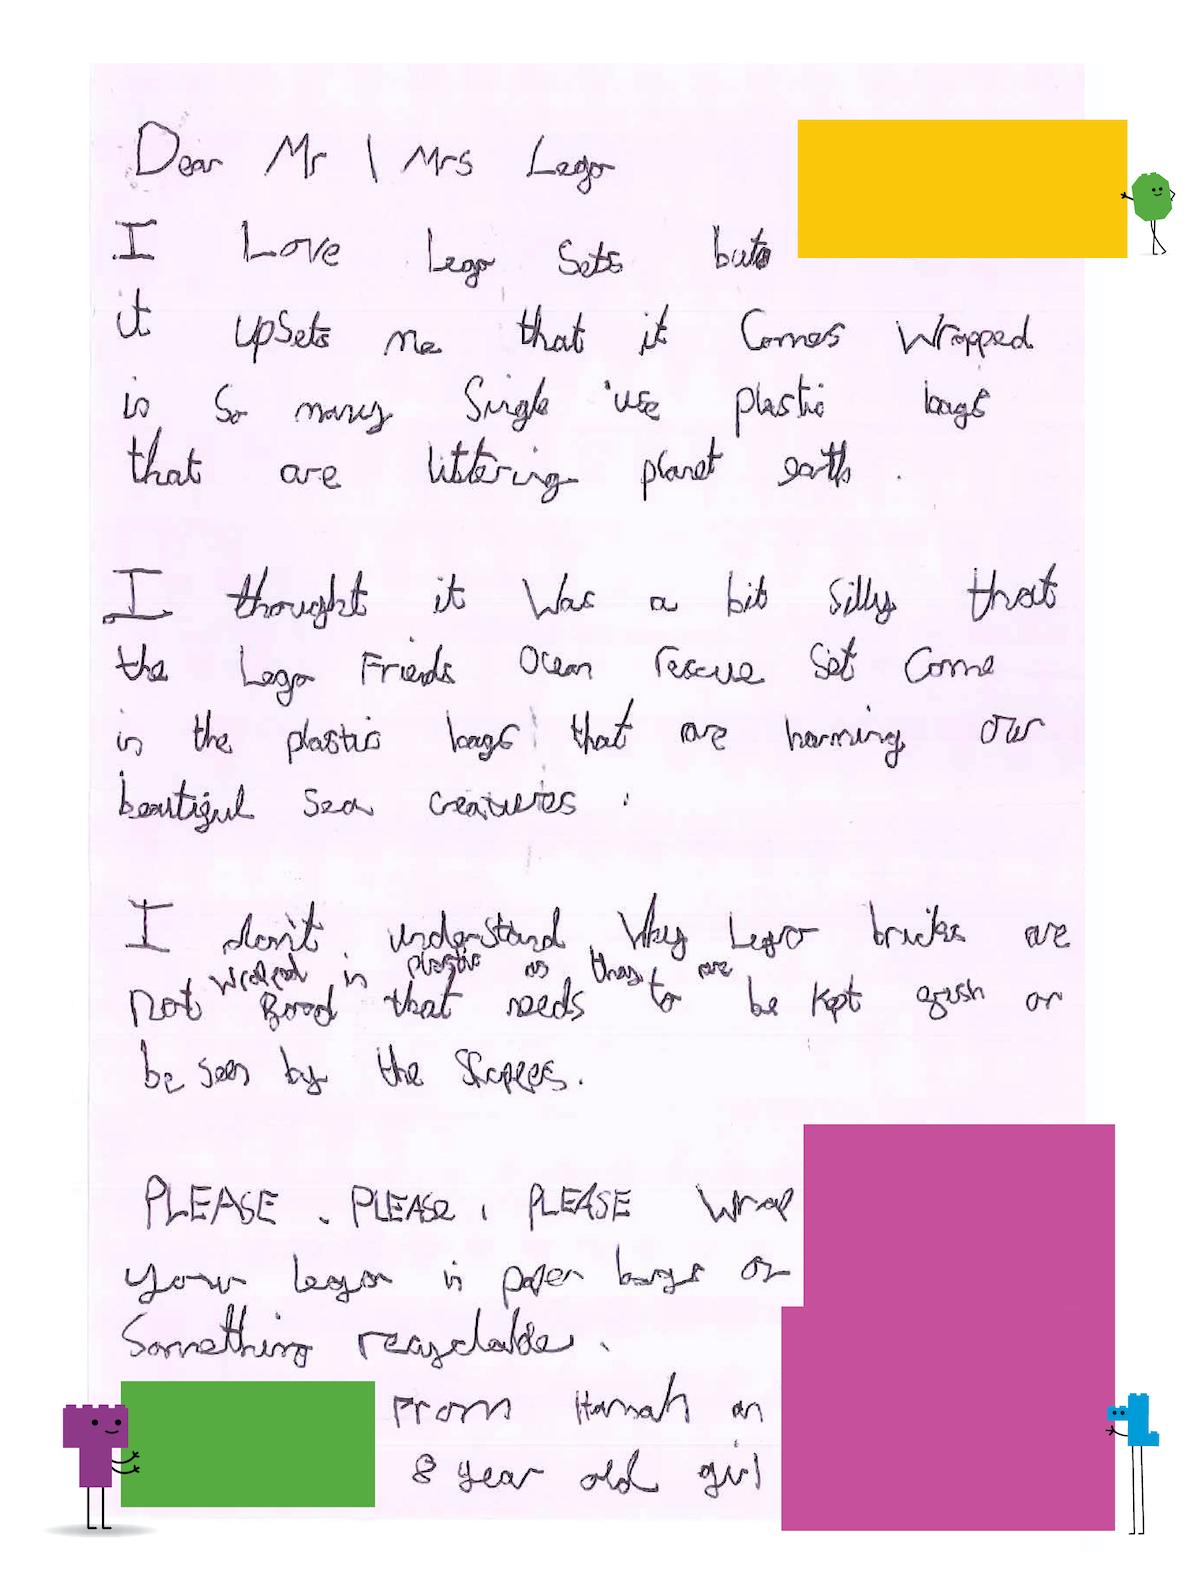 Dear Mr / Mrs Lego
I Love Lego Sets but
it upSets me that it Comes Wrapped
in So many Single use plastic bags
that are littering planet earth.
I thought it Was a bit Silly that
the Lego Friends Ocean rescue Set Come
in the plastic bags that are harming our
beautiful Sea creatures.
I don't understand Why Lego bricks are
wrapped in plastic as they are
not Food that needs to be kept fresh or
be seen by the
PLEASE, PLEASE, PLEASE Wrap
your lego in paper bags or
Something recyclable.
From Hannah an
8 year old girl